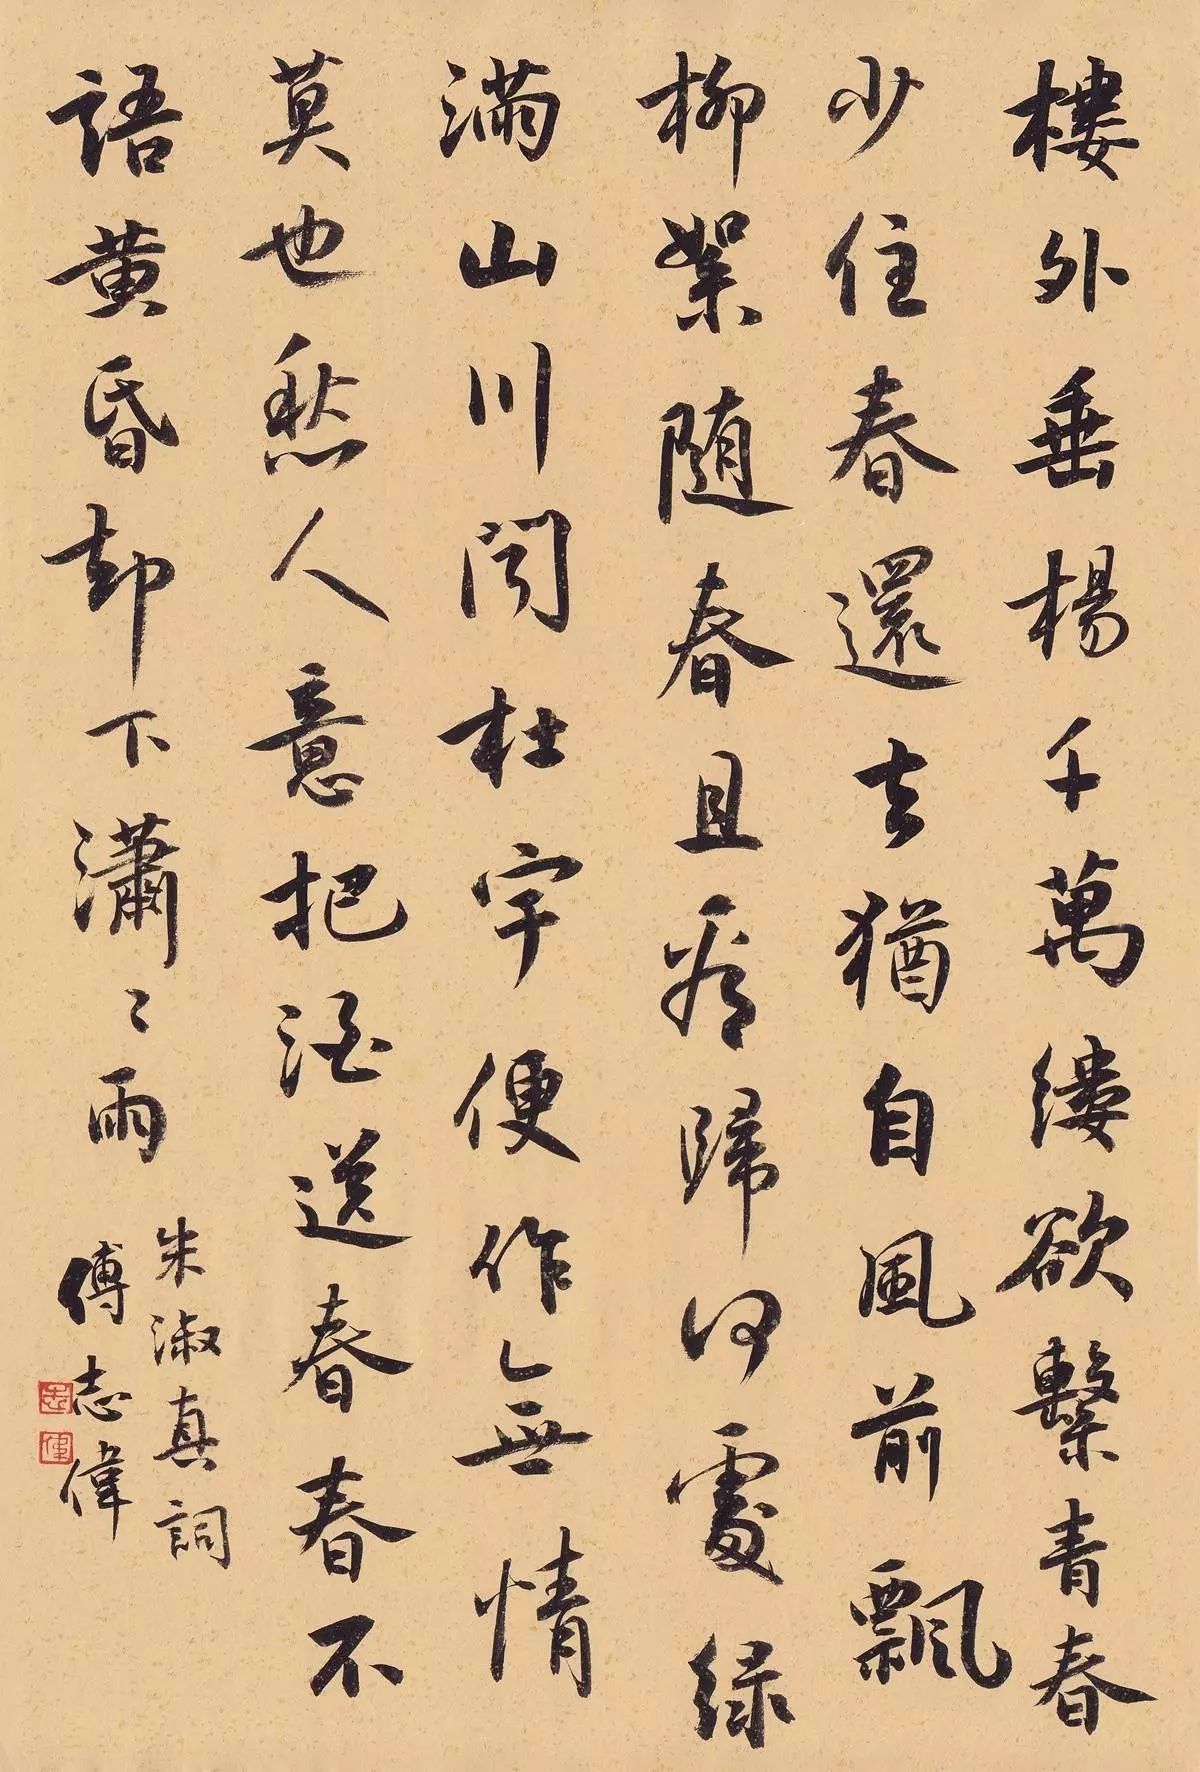 樓外垂楊千萬縷欲繫青春
少住春還去猶自風前飄
柳絮随春且看歸何處緑
滿山川闻杜宇便作無情
莫也愁人意把酒送春春不
語黄昏却下瀟〻雨
朱淑真詞
傅志偉
志
偉